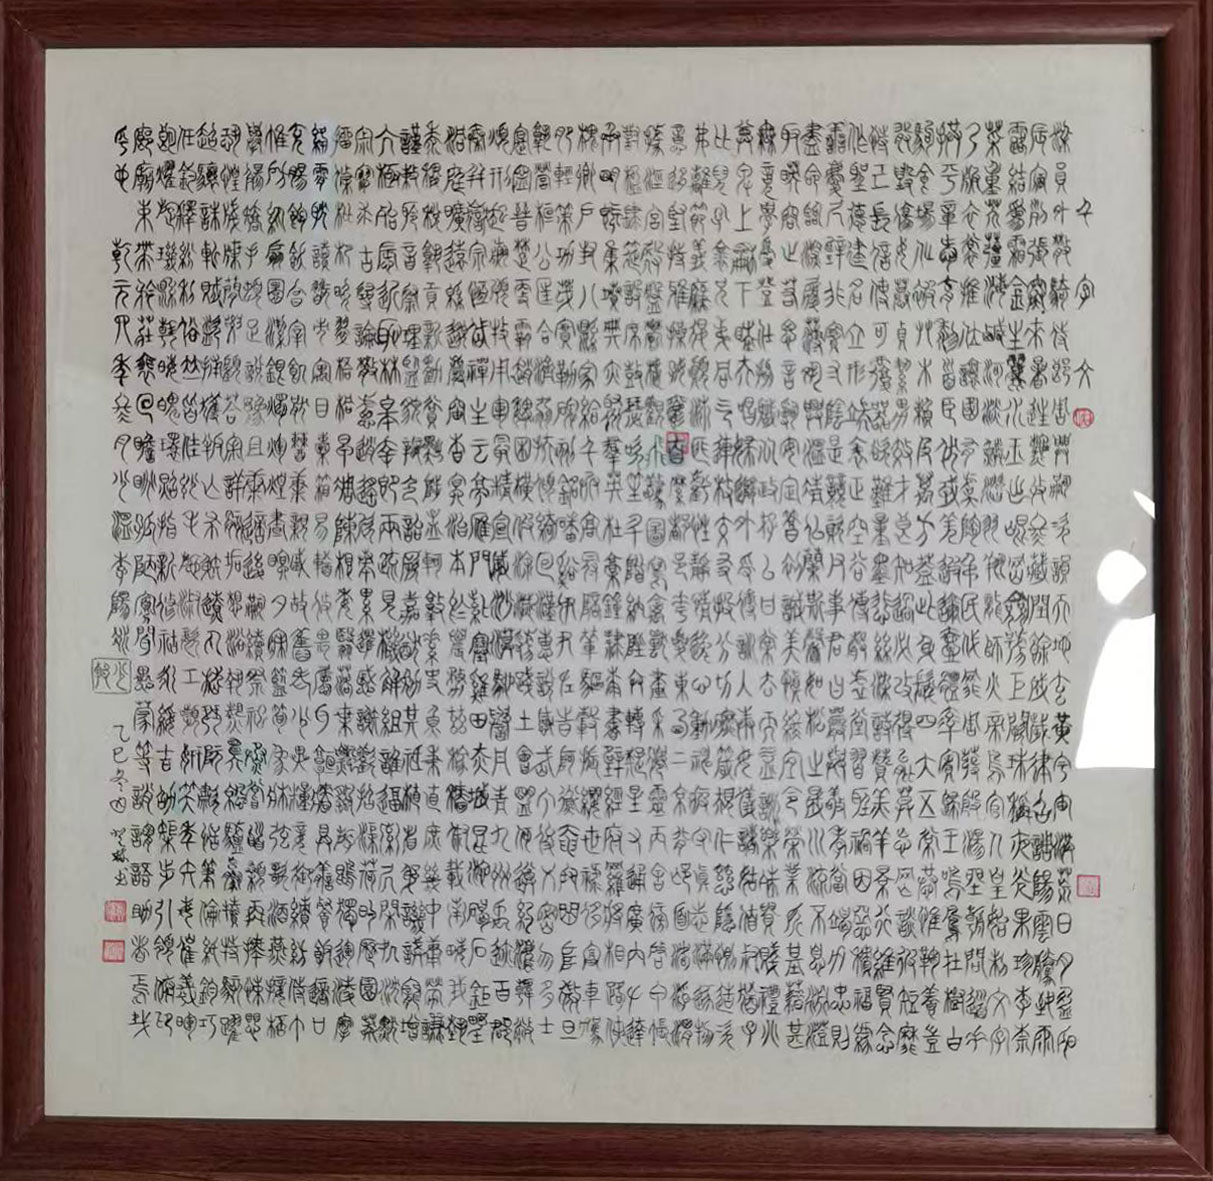 千字文
梁員外散騎侍郎周興嗣次韻天地玄黃宇宙洪荒日月盈昃
辰宿列張寒來暑往秋收冬藏閏餘成歲律呂調陽雲騰致雨
露結為霜金生麗水玉出崑岡劍號巨闕珠稱夜光果珍李柰
菜重芥薑海鹹河淡鱗潛羽翔龍師火帝鳥官人皇始制文字
乃服衣裳推位讓國有虞陶唐弔民伐罪周發殷湯坐朝問道垂
拱平章愛育黎首臣伏戎羌遐邇壹體率賓歸王鳴鳳在樹白
駒食場化被草木賴及萬方蓋此身髮四大五常恭惟鞠養豈
敢毀傷女慕貞潔男效才良知過必改得能莫忘罔談彼短靡
恃己長信使可覆器欲難量墨悲絲染詩讚羔羊景行維賢克念
作聖德建名立形端表正空谷傳聲虛堂習聽禍因惡積福緣
善慶尺璧非寶寸陰是競資父事君曰嚴與敬孝當竭力忠則
盡命臨深履薄夙興溫凊似蘭斯馨如松之盛川流不息淵澄
取暎容止若思言辭安定篤初誠美慎終宜令榮業所基籍甚
無竟學優登仕攝職從政存以甘棠去而益詠樂殊貴賤禮別
尊卑上和下睦夫唱婦隨外受傅訓入奉母儀諸姑伯叔猶子
比兒孔懷兄弟同氣連枝交友投分切磨箴規仁慈隱惻造次
弗離節義廉退顛沛匪虧性靜情逸心動神疲守真志滿逐物
意移堅持雅操好爵自縻都邑華夏東西二京背邙面洛浮渭
據涇宮殿盤鬱樓觀飛驚圖寫禽獸畫彩仙靈丙舍傍啟甲帳
對楹肆筵設席鼓瑟吹笙升階納陛弁轉疑星右通廣內左達
承明既集墳典亦聚群英杜稿鍾隸漆書壁經府羅將相路俠
槐卿戶封八縣家給千兵高冠陪輦驅轂振纓世祿侈富車駕
肥輕策功茂實勒碑刻銘磻溪伊尹佐時阿衡奄宅曲阜微旦
孰營桓公匡合濟弱扶傾綺回漢惠說感武丁俊乂密勿多士
寔寧晉楚更霸趙魏困橫假途滅虢踐土會盟何遵約法韓弊
煩刑起翦頗牧用軍最精宣威沙漠馳譽丹青九州禹跡百郡
秦并嶽宗恆岱禪主云亭雁門紫塞雞田赤城昆池碣石鉅野
洞庭曠遠綿邈巖岫杳冥治本於農務茲稼穡俶載南畝我藝
黍稷稅熟貢新勸賞黜陟孟軻敦素史魚秉直庶幾中庸勞謙
謹敕聆音察理鑑貌辨色貽厥嘉猷勉其祗植省躬譏誡寵增
抗極殆辱近恥林皋幸即兩疏見機解組誰逼索居閒處沉默
寂寥求古尋論散慮逍遙欣奏累遣慼謝歡招渠荷的歷園莽
抽條枇杷晚翠梧桐早凋陳根委翳落葉飄颻遊鵾獨運凌摩
絳霄耽讀翫市寓目囊箱易輶攸畏屬耳垣牆具膳飧飯適口
充腸飽飫烹宰飢厭糟糠親戚故舊老少異糧妾御績紡侍巾
帷房紈扇圓潔銀燭煒煌晝眠夕寐藍筍象床弦歌酒讌接杯
舉觴矯手頓足悅豫且康嫡後嗣續祭祀烝嘗稽顙再拜悚懼恐
惶牋牒簡要顧答審詳骸垢想浴執熱願涼驢騾犢特駭躍
超驤誅斬賊盜捕獲叛亡布射僚丸嵇琴阮嘯恬筆倫紙鈞巧
任釣釋紛利俗並皆佳妙毛施淑姿工顰妍笑年矢每催曦暉
朗曜璇璣懸斡晦魄環照指薪修祜永綏吉劭矩步引領俯仰
廊廟束帶矜莊徘徊瞻眺孤陋寡聞愚蒙等誚謂語助者焉哉
乎也 乾元年冬月少溫李陽冰
乙巳冬月 書